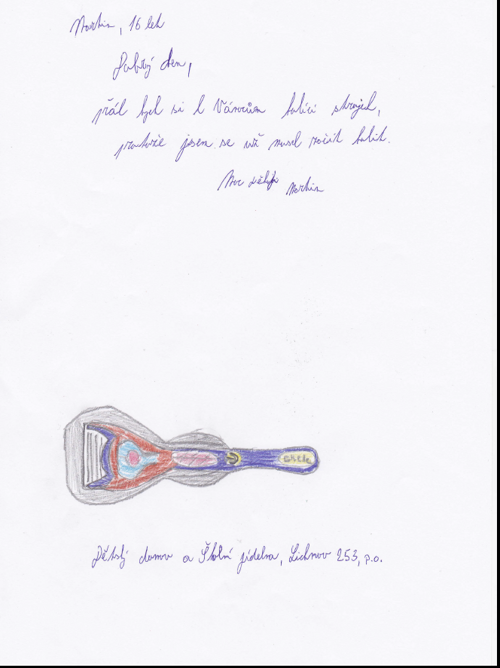 Martin, 16 let
Dobrý den,
přál bych si k Vánocům holící strojek,
protože jsem se už musel začít holit.
Moc děkuji Martin
Dětský domov a Školní jídelna, Lichnov 253, p.o.